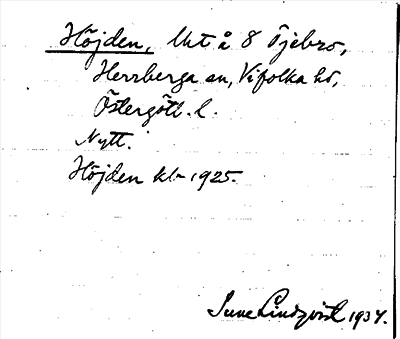 Höjden, Ukt å 8 Öjebro,
Herrberga sn, Vifolka hd,
Östergötl. l.
Nytt.
Höjden kl- 1925.
Sune Lindqvist 1934.